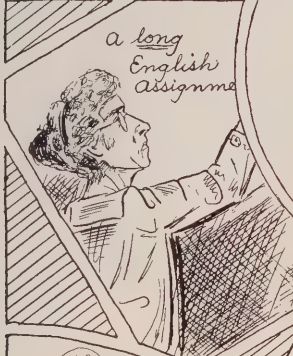 A long
English
Assignme